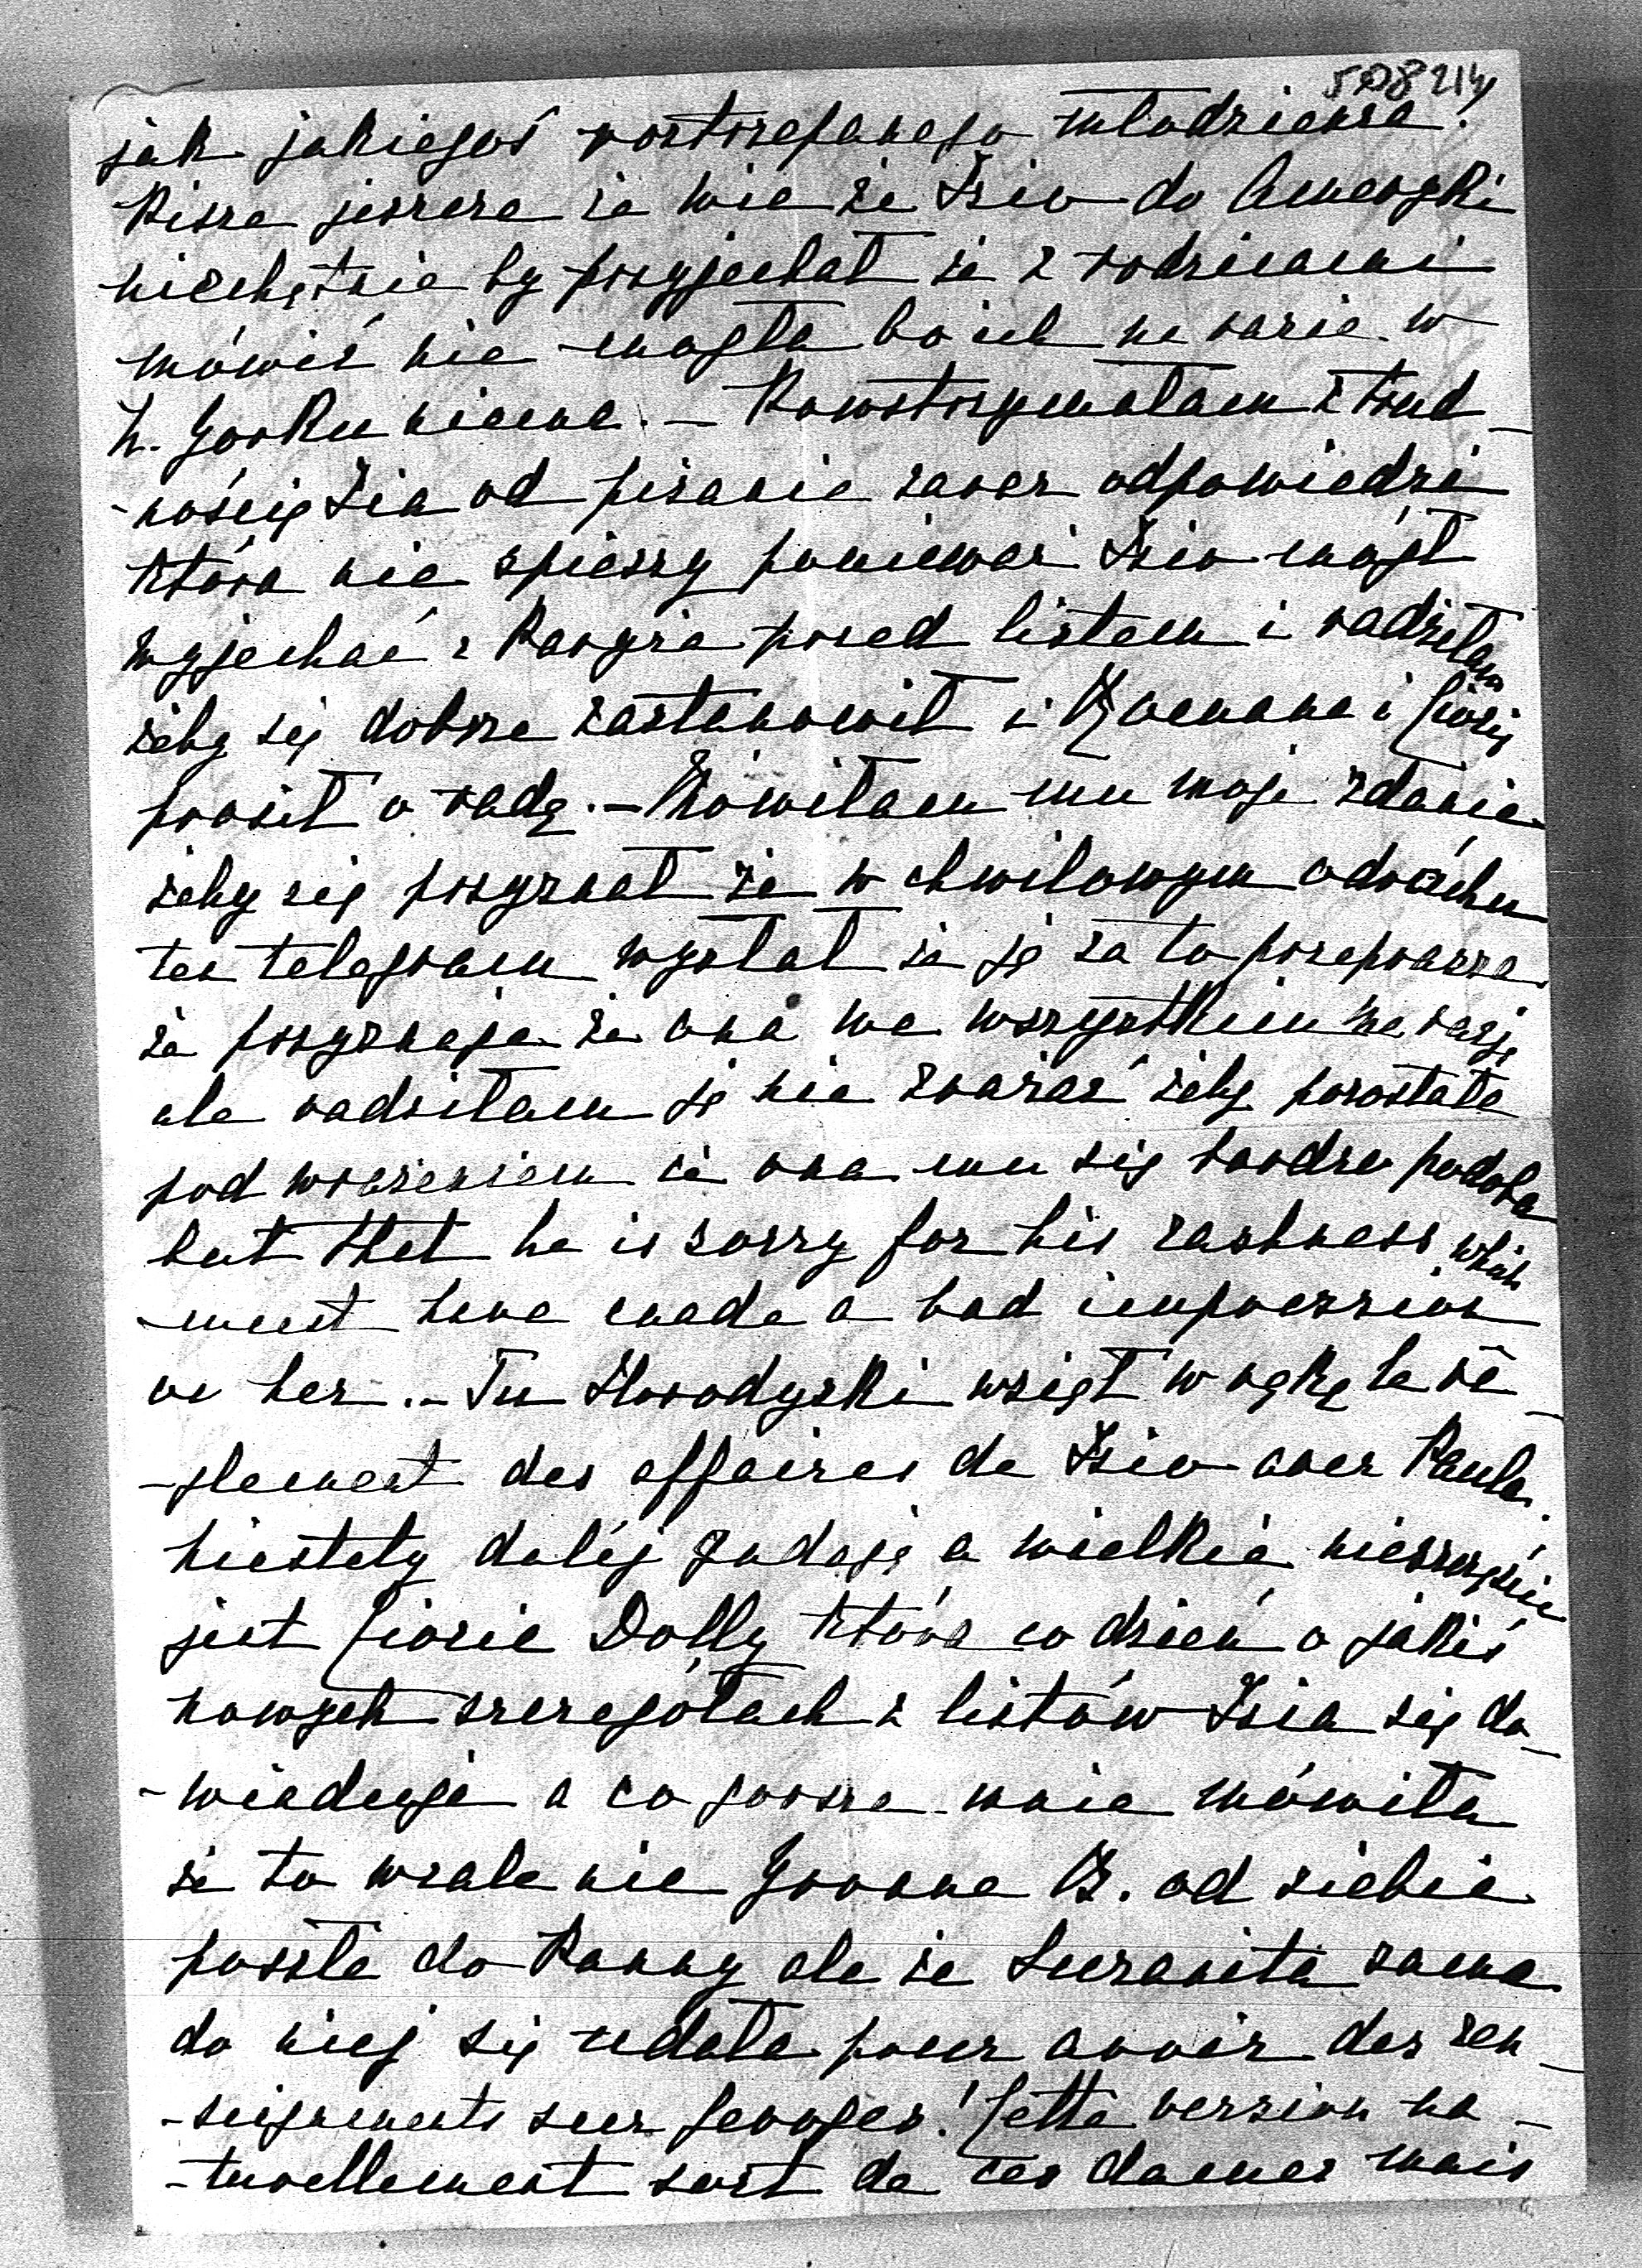 508 214
jak jakiegoś roztrzepanego młodzieńca.
Pisze jeszcze że wie że Izio do Ameryki
niechętnie by przyjechał że z rodzicami
mówić nie mogła bo ich na razie w
N. Yorku niema. — Powstrzymałam z trud-
-nością Zia od pisania zaraz odpowiedzi
która nie spieszy ponieważ Izio mógł
wyjechać z Paryża przed listem i radziłam
żeby się dobrze zastanowił i Romana i Ciocię
prosił o radę. — Mówiłam mu moje zdanie
żeby się przyznał że w chwilowym odruchu
ten telegram wysłał że ją za to przeprasza
że przyznaje że ona we wszystkiem ma rację
ale radziłam jej nie zrażać żeby pozostała
pod wrażeniem że ona mu się bardzo podoba
but that he is sorry for his rashness which
must have made a bad impression
on her. — Tu Horodyski wziął w rękę le rè-
-glement des affaires de Izio avec Paula.
Niestety dalej gadają a wielkie nieszczęście
jest Ciocia Dolly która co dzień o jakiś
nowych szczegółach z listów Izia się do-
-wiaduje a co gorsza mnie mówiła
że to wcale nie Yvonne B. od siebie
poszła do Panny ale że Suzanita sama
do niej się udała pour avoir des ren-
-seignements sur Georges! Cette version na-
-turellement sort de ces dames mais